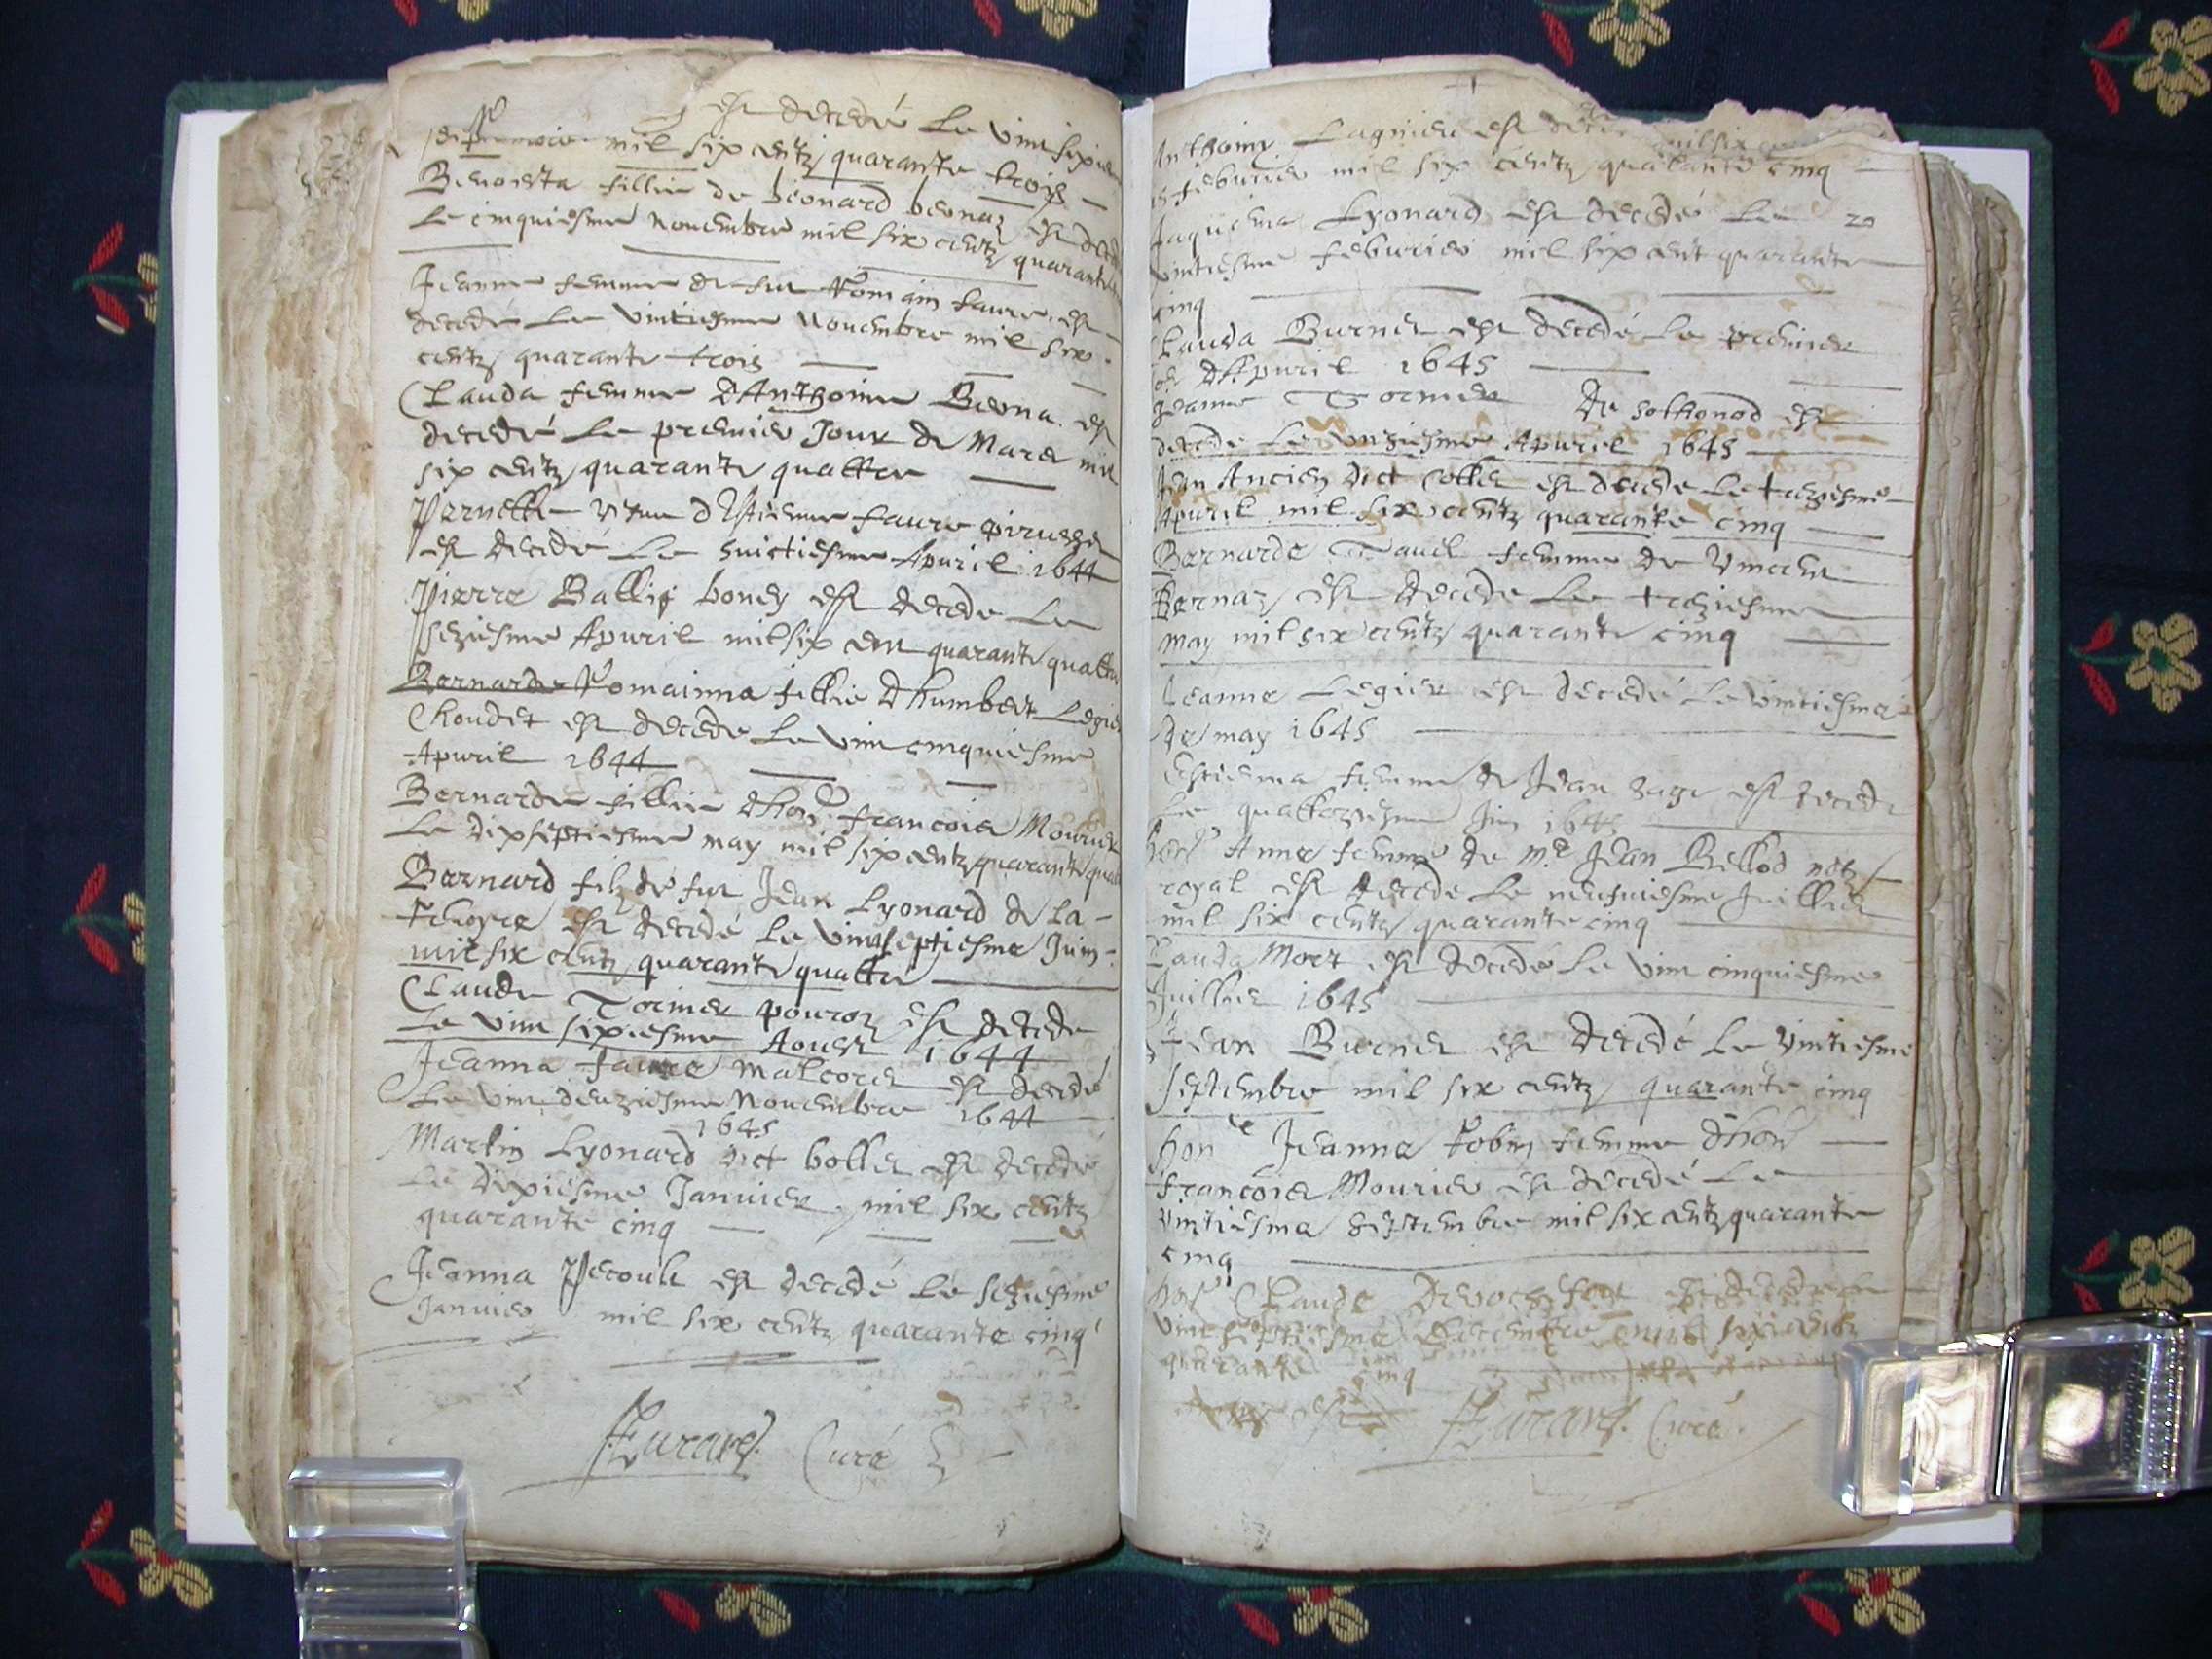 est decedé Le vint sixie
mil six centz quarante trois
Benoista fillie de Leonard bernaz est deced
Le cinquiesme Nouembre mil six centz quarante
Jeanne femme de fut Romain faure est
decedé Le vintiesme Nouembre mil six
centz quarante trois
Clauda femme d'Anthoine Berna est
decedé Le premier Jour de Mars mil
six centz quarante quattre
Pernette vefue d'Estienne faure
est decedé Le huictiesme Apuril 1644
Pierre Ballif bouez est decede Le
seziesme Apuril mil six cent quarante quattre
Bernarde Romainna fillie d'humbert Legier
Choudet est decede Le vint cinquiesme
Apuril 1644
Bernarde fillie dhon françois Mourier
Le dixseptiesme may mil six centz quarante quat
Bernard filz de fut Jean Lyonard de La
est decedé Le vintseptiesme Juin
mil six centz quarante quattre
Claude Tornier pouroz est decede
Le vint sixiesme Aoust 1644
Jeanna faure malcorer est decedé
Le vint deuziesme Nouembre 1644
1645
Martin Lyonard dict bollet est decedé
Le dixiesme Januier mil six centz
quarante cinq
Jeanna Pecoult est decedé Le seziesme
Januier mil six centz quarante cinq
Curé
Anthoine Lagnieu est dece
feburier mil six centz quarante cinq
Jaquema Lyonard est decedé Le 20
vintiesme feburier mil six cent quarante
cinq
Clauda Burnet est decedé Le premier
d'Apuril 1645
Jeanne Tornier de sothonod est
decede Le unziesme Apuril 1645
Jean Ancien dict Collet est decede Le treziesme
Apuril mil six centz quarante cinq
Bernarde Tauel femme de Vincent
Bernaz est decede Le treziesme
may mil six centz quarante cinq
Jeanne Legier est decedé Le vintiesme
de may 1645
Estienna femme de Jean est decede
Le quattorziesme Juin 1645
Anne femme de Me Jean Bellod notz
royal est decede Le neufuiesme Juillet
mil six centz quarante cinq
Clauda Mort est decedé Le vint cinquiesme
Juillet 1645
Jean Burnet est decedé Le vintiesme
septembre mil six centz quarante cinq
hon Jeanne Robin femme d'hon
françois Mourier est decedé Le
vintiesme septembre mil six centz quarante
cinq
hon Claude est decede Le
vint septiesme decembre mil six centz
quarante cinq
Curé